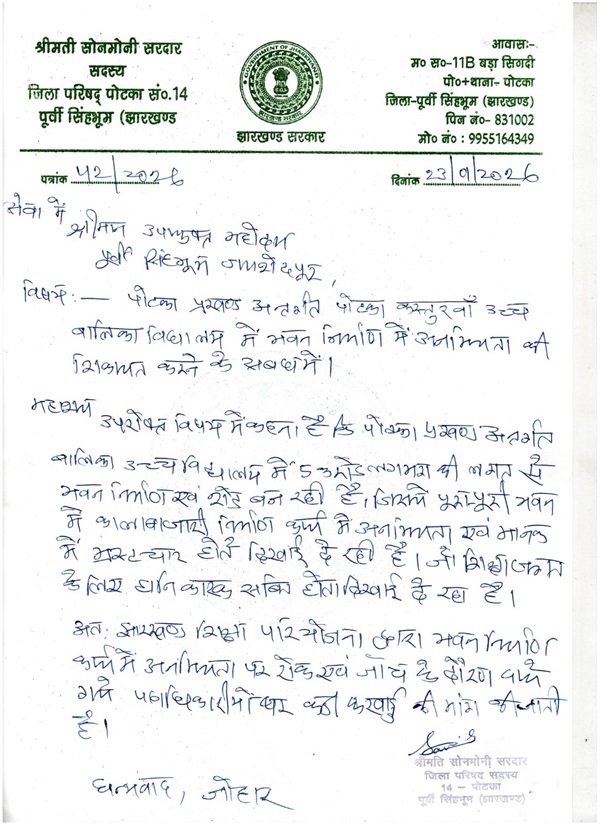 श्रीमती सोनमोनी सरदार
सदस्य
जिला परिषद् पोटका सं०.14
पूर्वी सिंहभूम (झारखण्ड
GOVERNMENT OF JHARKHAND
झारखण्ड सरकार
झारखण्ड सरकार
आवासः-
म० स०-11B बड़ा सिगदी
पो०+थाना- पोटका
जिला-पूर्वी सिंहभूम (झारखण्ड)
पिन नं०- 831002
मो० नं० : 9955164349
पत्रांक 42/2026
दिनांक 23/9/2026
सेवा में
श्रीमान उपायुक्त महोदय
पूर्वी सिंहभूम जमशेदपुर,
विषय :— पोटका प्रखण्ड अन्तर्गत पोटका कस्तुरवाँ उच्च
बालिका विद्यालय में भवन निर्माण में अनियमिता की
शिकायत करने के सबध में।
महाशय
उपरोक्त विषय में कहना है कि पोटका प्रखण्ड अन्तर्गत
बालिका उच्च विद्यालय में 5 करोड़ लगभग की लागत से
भवन निर्माण एवं रोड बन रही है, जिसमें भवन
में कालाबाजारी निर्माण कार्य में अनियमिता एवं मानक
में भ्रस्टाचार होते दिखाई दे रही है। जो शिक्षा
के लिए हानि कारक साबित होता दिखाई दे रहा है।
अतः झारखण्ड शिक्षा परियोजना द्वारा भवन निर्माण
कार्य में अनियमिता पर रोक एवं जाँच के दौरान पाये
गये पदाधिकारीयों पर कड़ी करवाई की मांग की जाती
है।
श्रीमति सोनमोनी सरदार
जिला परिषद सदस्य
14 - पोटका
पूर्वी सिंहभूम (झारखण्ड)
धन्यवाद, जोहार